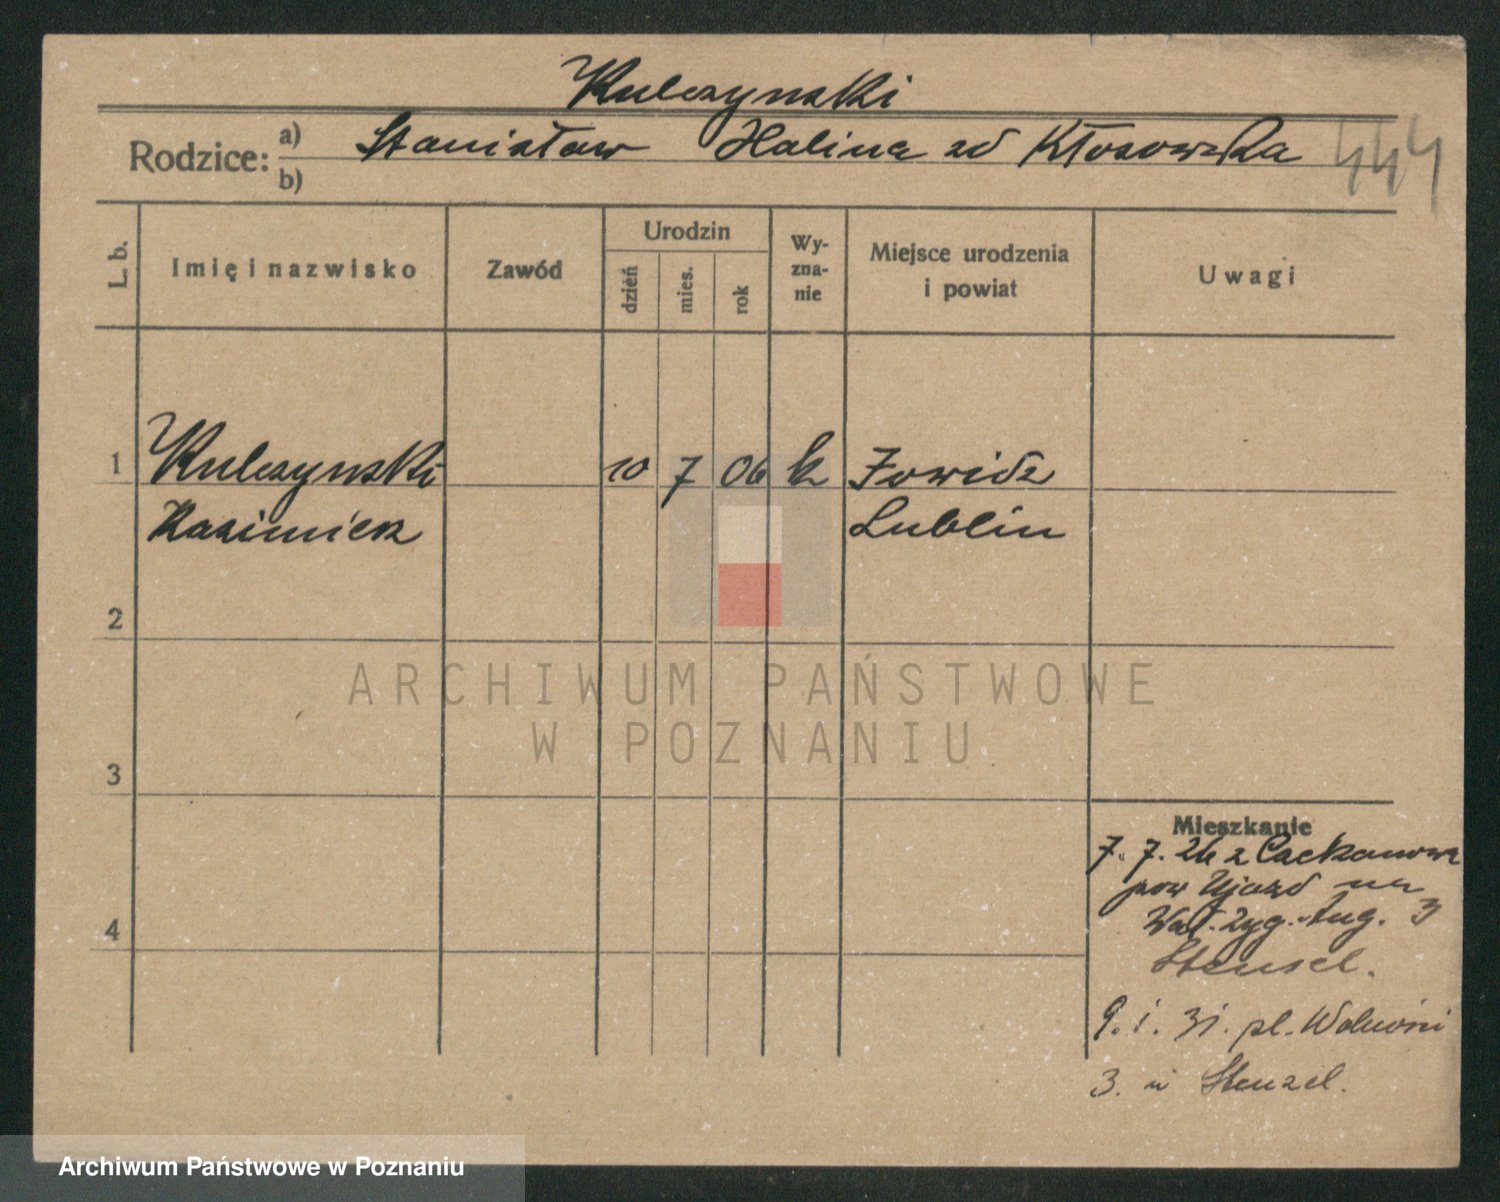 Kulczynski
Rodzice: a) Stanisław Halina zd Kłosowska 444
b)
L. b. Imię i nazwisko Zawód Urodzin dzień mies. rok Wy-zna-nie Miejsce urodzenia i powiat Uwagi
1 Kulczynski 10 7 06 k Jowidz
Kazimierz Lublin
2
ARCHIWUM PAŃSTWOWE
W POZNANIU
3
Mieszkanie
7. 7. 26 z
pow Ujazd na
4 Wał. Zyg. Aug. 3
Stensel.
9. 1. 31. pl. Wolności
3. u Stenzel.
Archiwum Państwowe w Poznaniu